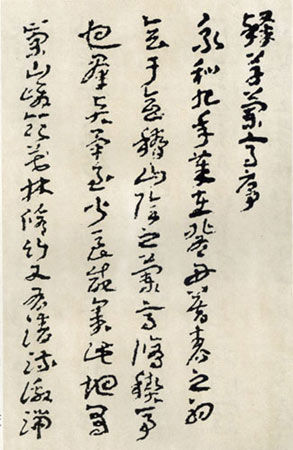 草蘭亭序
永和九年歲在癸丑暮春之初
會于會稽山陰之蘭亭脩禊事
也群賢畢至少長咸集此地有
崇山峻領茂林脩竹又有清流激湍